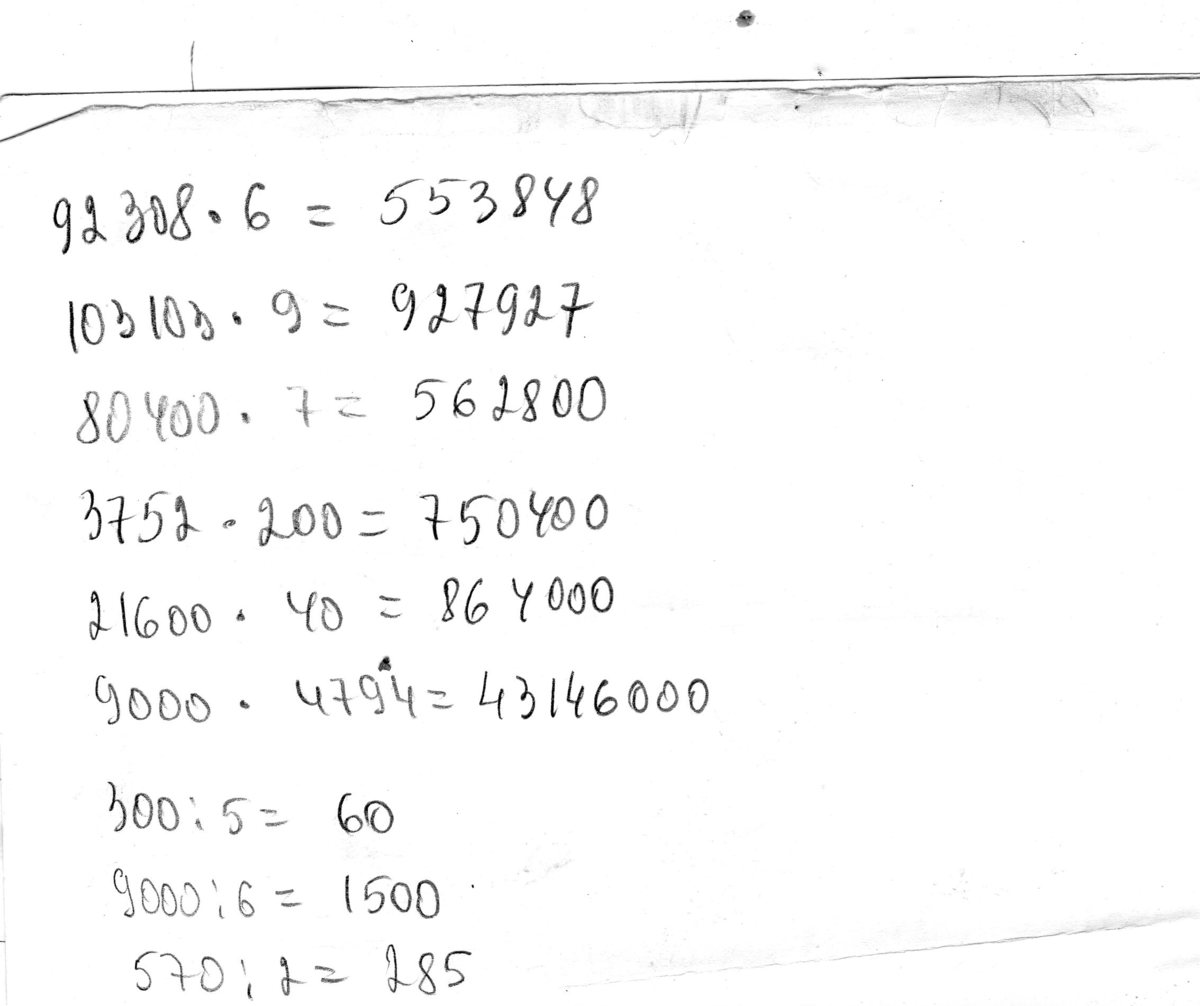 92308·6 = 553848
103103·9 = 927927
80400·7 = 562800
3752·200 = 750400
21600·40 = 864000
9000·4794 = 43146000
300:5 = 60
9000:6 = 1500
570:2 = 285